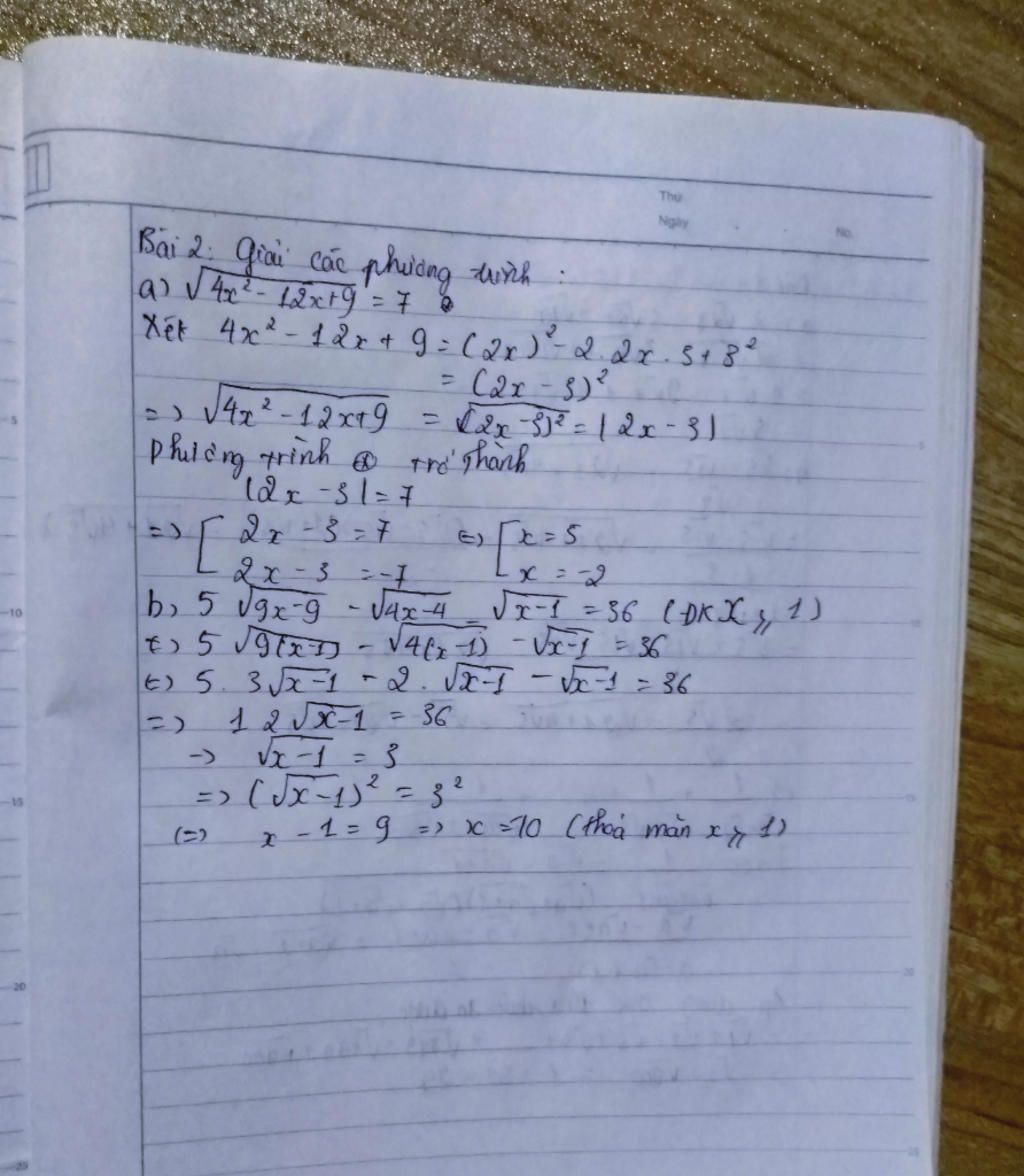 Thứ
Ngày
No.
Bài 2: Giải các phương trình :
a) √(4x² - 12x+9) = 7 ⊛
Xét 4x² - 12x + 9 = (2x)² - 2.2x.3+3²
= (2x - 3)²
=> √(4x² - 12x+9) = √((2x-3)²) = |2x - 3|
phương trình ⊛ trở thành
|2x - 3| = 7
=> [ 2x - 3 = 7 <=> [ x = 5
2x - 3 = -7 x = -2
b, 5 √(9x-9) - √(4x-4) - √(x-1) = 36 (ĐK X ⩾ 1)
<=> 5 √(9(x-1)) - √(4(x-1)) - √(x-1) = 36
<=> 5. 3√(x-1) - 2. √(x-1) - √(x-1) = 36
=> 12√(x-1) = 36
-> √(x-1) = 3
=> (√(x-1))² = 3²
(=> x - 1 = 9 => x = 10 (thoả mãn x ⩾ 1)
5
10
15
20
25